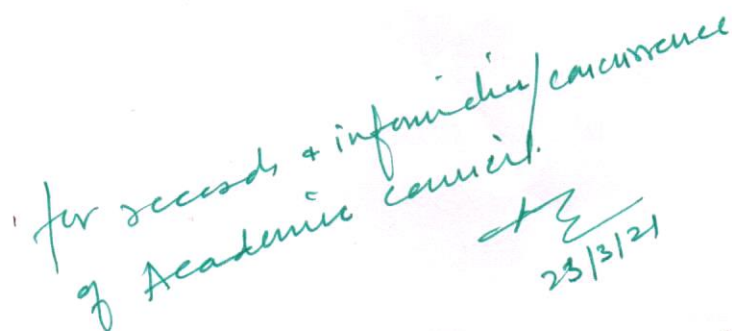 for records & information/concurrence
of Academic council.
23/3/21